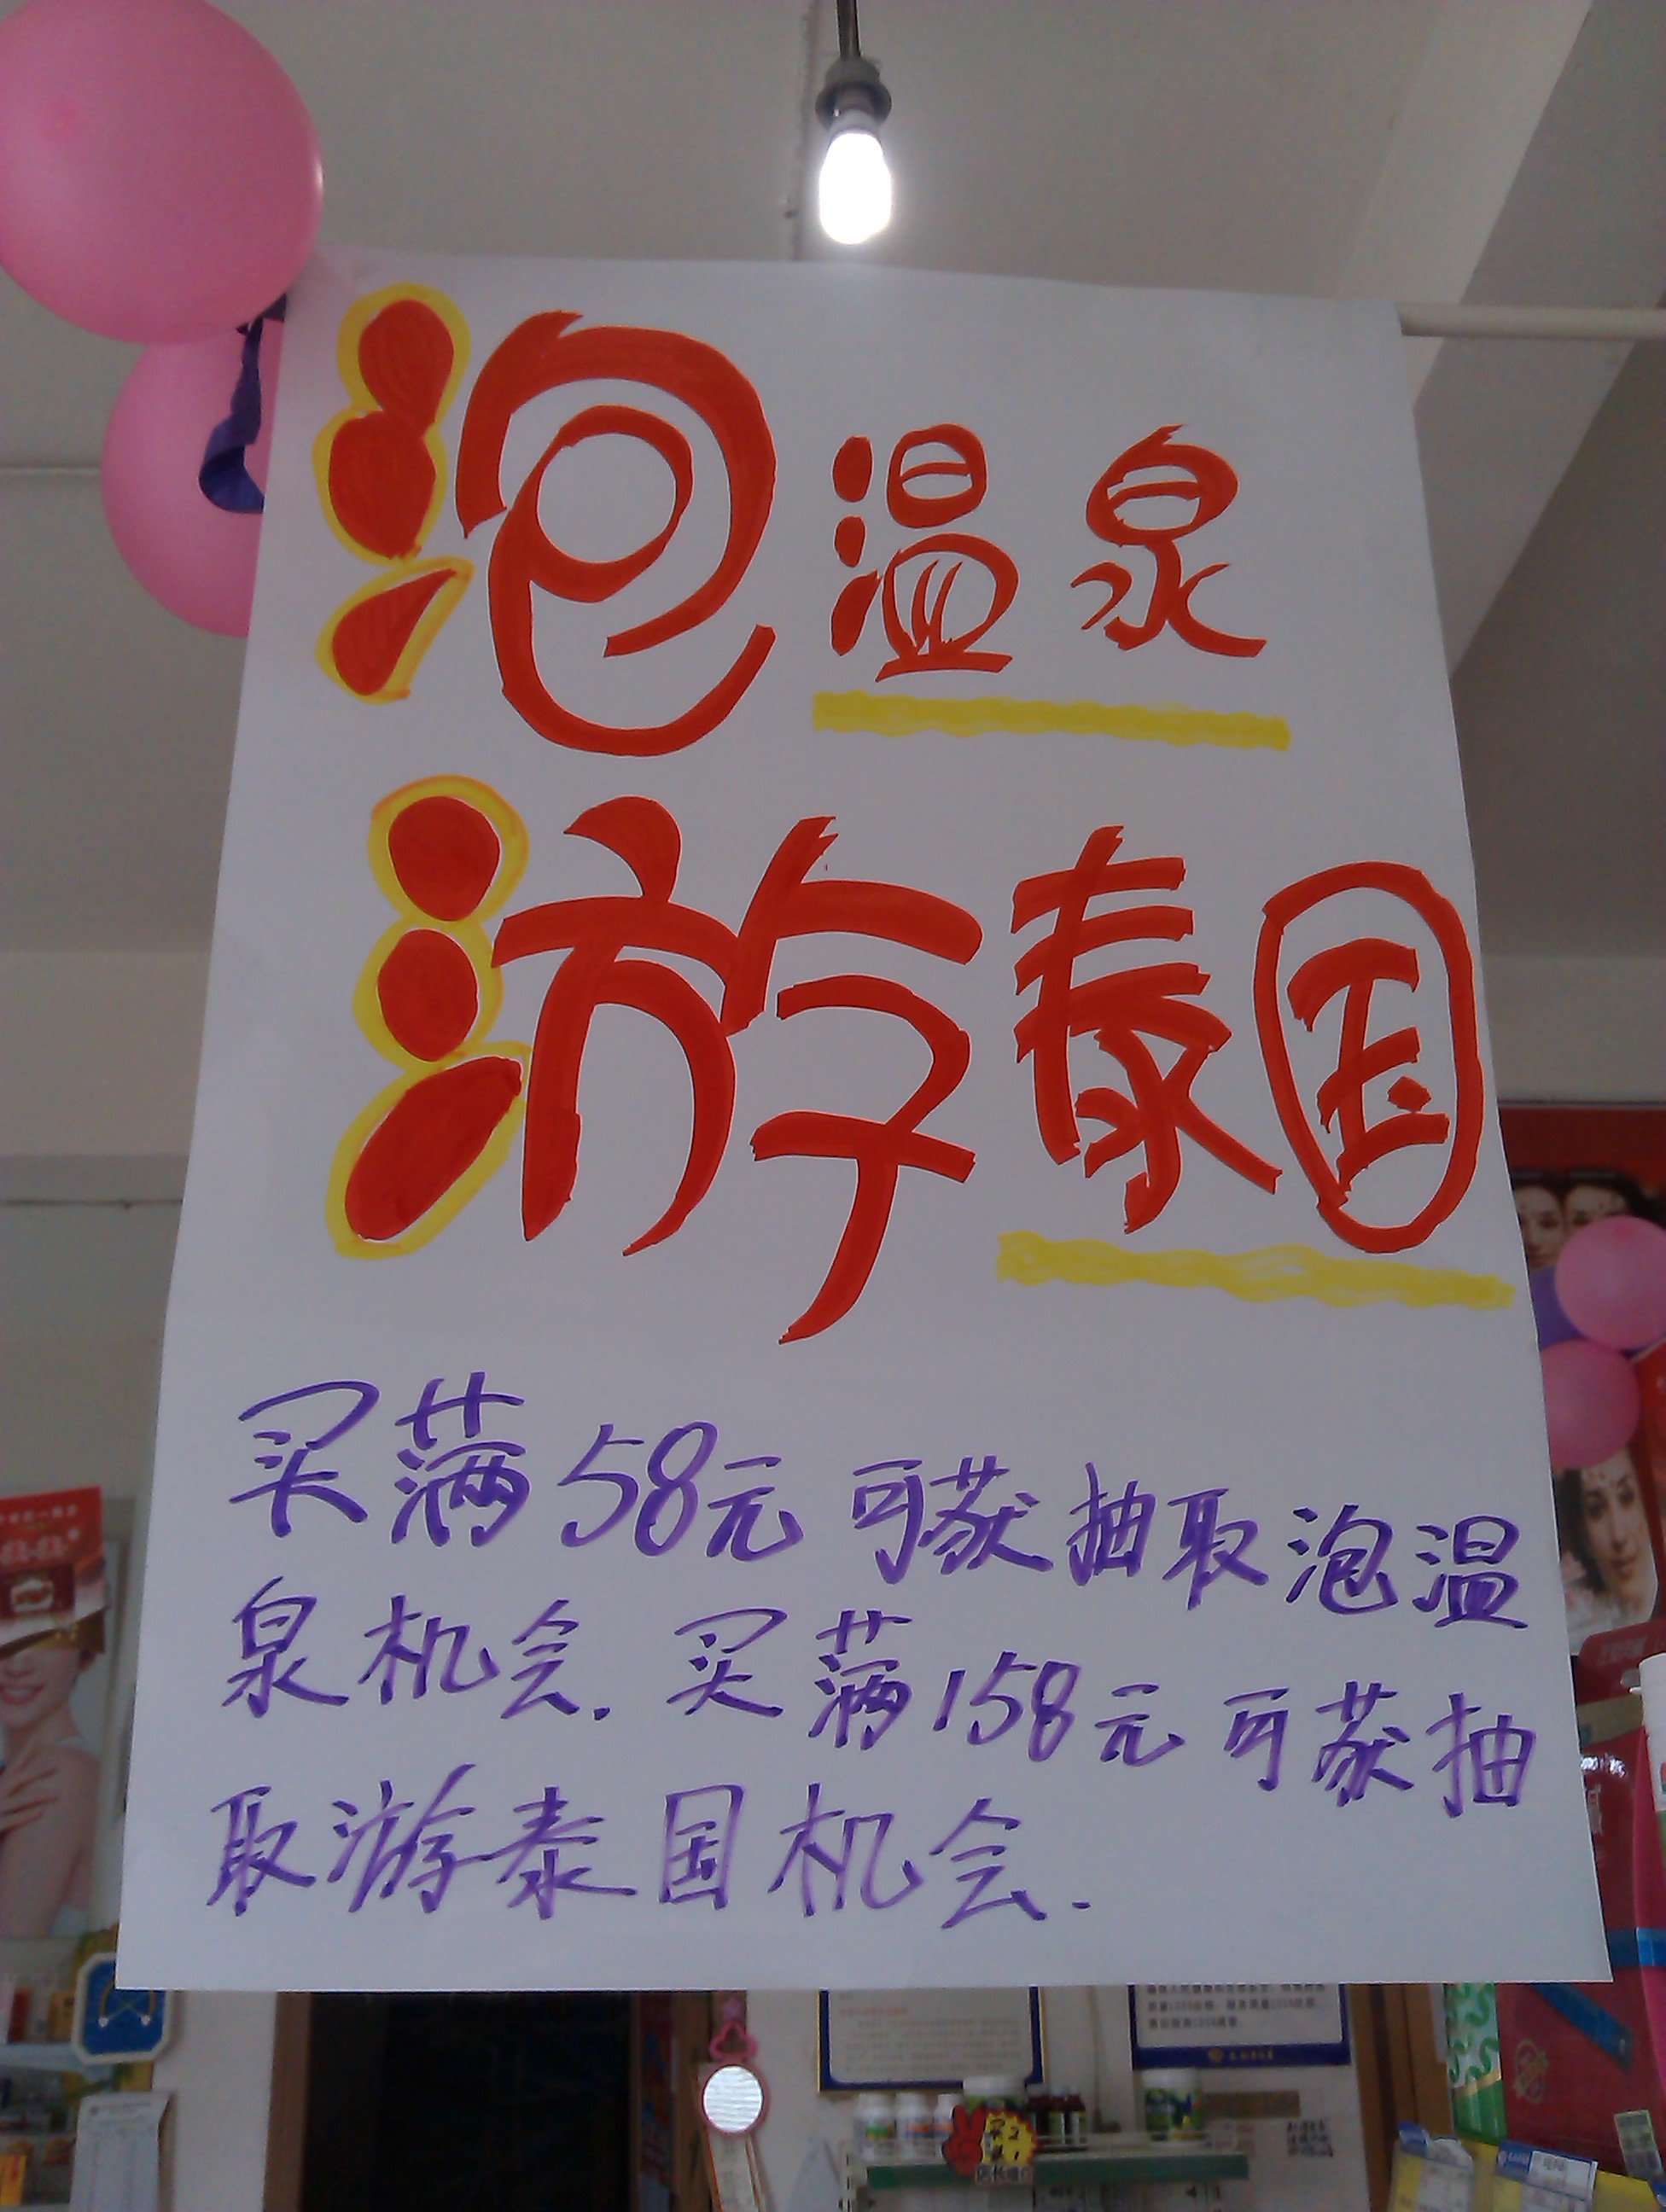 泡温泉
游泰国
买满58元可获抽取泡温
泉机会.买满158元可获抽
取游泰国机会.